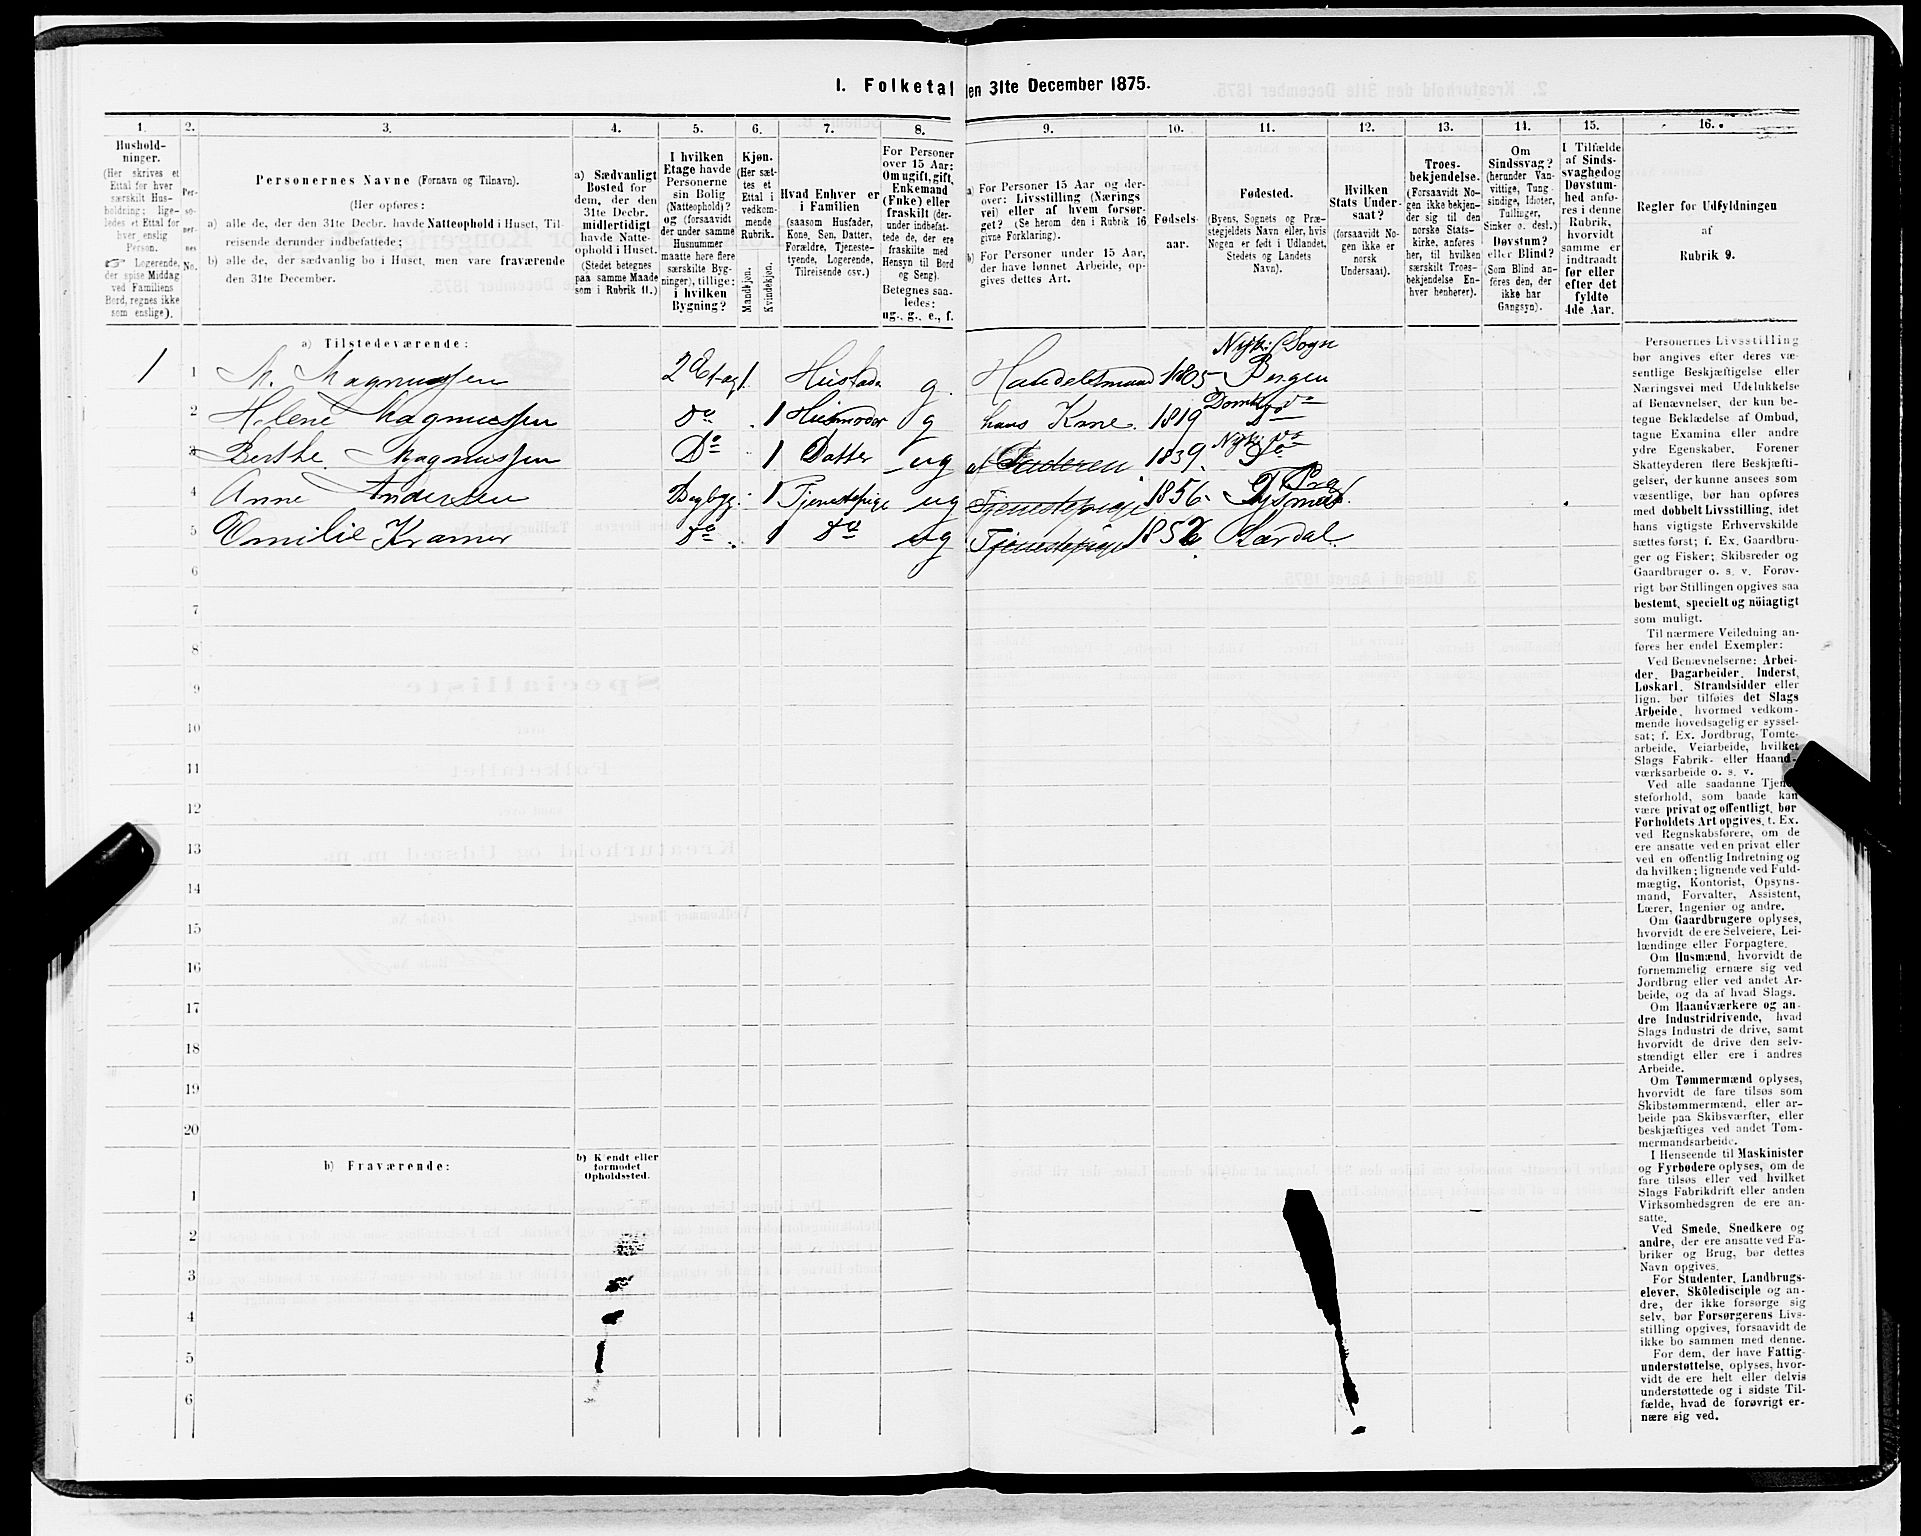 I. Folketal den 31te December 1875.
1. 2. 3. 4. 5. 6. 7. 8. 9. 10. 11. 12. 13. 14. 15. 16.
Hushold-
ninger.
(Her skrives et
Ettal for hver
særskilt Hus-
holdning; lige-
ledes et Ettal for
hver enslig
Person.
☞ Logerende,
der spise Middag
ved Familiens
Bord, regnes ikke
som enslige).
Per-
so-
ner-
nes
No.
Personernes Navne (Fornavn og Tilnavn).
(Her opføres:
a) alle de, der den 31te Decbr. havde Natteophold i Huset, Til-
reisende derunder indbefattede;
b) alle de, der sædvanlig bo i Huset, men vare fraværende
den 31te December.
a) Sædvanligt
Bosted for
dem, der den
31te Decbr.
midlertidigt
havde Natte-
ophold i Huset.
(Stedet betegnes
paa samme Maade
som i Rubrik 11.)
I hvilken
Etage havde
Personerne
sin Bolig
(Natteophold)?
og (forsaavidt
der under samme
Husnummer
maatte høre flere
særskilte Byg-
ninger), tillige:
i hvilken
Bygning?
Kjøn.
(Her sæt-
tes et
Ettal i
vedkom-
mende
Rubrik.
Mandkjøn.
Kvindekjøn.
Hvad Enhver er
i Familien
(saasom Husfader,
Kone, Søn, Datter,
Forældre, Tjeneste-
tyende, Logerende,
Tilreisende osv.)
For Personer
over 15 Aar:
Om ugift, gift,
Enkemand
(Enke) eller
fraskilt (der-
under indbefat-
tede de, der ere
fraskilte med
Hensyn til Bord
og Seng).
Betegnes saa-
ledes:
ug., g., e., f.
a) For Personer 15 Aar og der-
over: Livsstilling (Nærings-
vei) eller af hvem forsør-
get? (Se herom den i Rubrik 16
givne Forklaring).
b) For Personer under 15 Aar,
der have lønnet Arbeide, op-
gives dettes Art.
Fødsels-
aar.
Fødested.
(Byens, Sognets og Præ-
stegjeldets Navn eller, hvis
Nogen er født i Udlandet,
Stedets og Landets
Navn).
Hvilken
Stats Under-
saat?
(forsaavidt No-
gen ikke er
norsk
Undersaat).
Troes-
bekjendelse.
(Forsaavidt No-
gen ikke bekjen-
der sig til den
norske Stats-
kirke, anføres
her, til hvilken
særskilt Troes-
bekjendelse En-
hver henhører).
Om
Sindssvag?
(herunder Van-
vittige, Tung-
sindige, Idioter,
Tullinger,
Sinker o. desl.)
Døvstum?
eller Blind?
(Som Blind an-
føres den, der
ikke har
Gangsyn).
I Tilfælde
af Sinds-
svaghed og
Døvstum-
hed anfø-
res i denne
Rubrik,
hvorvidt
samme er
indtraadt
før eller
efter det
fyldte
4de Aar.
Regler for Udfyldningen
af
Rubrik 9.
a) Tilstedeværende:
1 1 M. Magnussen 2 Etag 1. Husfader g. Handelsmand 1805 Nyk: Sogn Bergen
2 Helene Magnussen do 1 Husmoder g hans Kone. 1819 Domk do
3 Berthe Magnussen Do 1 Datter ug 1839. Nyk: do
4 Anne Andersen Bagbyg: 1 Tjenestepige ug Tjenestepige 1856. Tysnes Prg.
5 Emilie Kramer do 1 do ug Tjenestepige 1852 Lærdal.
6
7
8
9
10
11
12
13
14
15
16
17
18
19
20
b) Fraværende:
b) Kjendt eller
formodet
Opholdssted.
1
2
3
4
5
6
Personernes Livsstilling
bør angives efter deres væ-
sentlige Beskjæftigelse eller
Næringsvei med Udelukkelse
af Benævnelser, der kun be-
tegne Beklædelse af Ombud,
tagne Examina eller andre
ydre Egenskaber. Forener
Skatteyderen flere Beskjæfti-
gelser, der kunne ansees som
væsentlige, bør han opføres
med dobbelt Livsstilling, idet
hans vigtigste Erhvervskilde
sættes først; f. Ex. Gaardbru-
ger og Fisker; Skibsreder og
Gaardbruger o. s. v. Forøv-
rigt bør Stillingen opgives saa
bestemt, specielt og nöiagtigt
som muligt.
Til nærmere Veiledning an-
føres her endel Exempler:
Ved Benævnelserne: Arbei-
der, Dagarbeider, Inderst,
Løskarl, Strandsidder eller
lign. bør tilføies det Slags
Arbeide, hvormed vedkom-
mende hovedsagelig er syssel-
sat; f. Ex. Jordbrug, Tomte-
arbeide, Veiarbeide, hvilket
Slags Fabrik- eller Haand-
værksarbeide o. s. v.
Ved alle saadanne Tjene-
steforhold, som baade kan
være privat og offentligt, bør
Forholdets Art opgives, t. Ex.
ved Regnskabsførere, om de
ere ansatte ved en privat eller
ved en offentlig Indretning og
da hvilken; lignende ved Fuld-
mægtig, Kontorist, Opsyns-
mand, Forvalter, Assistent,
Lærer, Ingeniør og andre.
Om Gaardbrugere oplyses,
hvorvidt de ere Selveiere, Lei-
lændinge eller Forpagtere.
Om Husmænd, hvorvidt de
fornemmelig ernære sig ved
Jordbrug eller ved andet Ar-
beide, og da af hvad Slags.
Om Haandværkere og an-
dre Industridrivende, hvad
Slags Industri de drive, samt
hvorvidt de drive den selv-
stændigt eller ere i andres
Arbeide.
Om Tømmermænd oplyses,
hvorvidt de fare tilsøs som
Skibstømmermænd, eller ar-
beide paa Skibsværfter, eller
beskjæftiges ved andet Tøm-
mermandsarbeide.
I Henseende til Maskinister
og Fyrbødere oplyses, om de
fare tilsøs eller ved hvilket
Slags Fabrikdrift eller anden
Virksomhedsgren de ere an-
satte.
Ved Smede, Snedkere og
andre, der ere ansatte ved Fa-
briker og Brug, bør dettes
Navn opgives.
For Studenter, Landbrugs-
elever, Skoledisciple og an-
dre, der ikke forsørge sig
selv, bør Forsørgerens Livs-
stilling opgives, forsaavidt de
ikke bo sammen med denne.
For dem, der have Fattig-
understøttelse, oplyses, hvor-
vidt de ere helt eller delvis
understøttede og i sidste Til-
fælde, hvad de forøvrigt er-
nære sig ved.